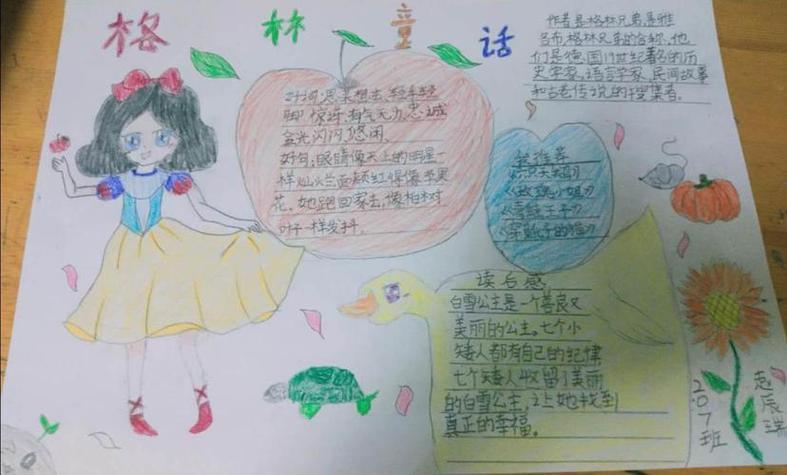 格林童话
作者是格林兄弟,是雅
各布·格林兄弟的合称,他
们是德国19世纪著名的历
史学家,语言学家,民间故事
和古老传说的搜集者。
好词:思来想去、轻手轻
脚、惊讶、有气无力、忠诚
金光闪闪、悠闲
好句:眼睛像天上的明星一
样灿烂,面颊红得像苹果
花。她跑回家去,像柏树
叶子一样发抖。
推荐
《六只天鹅》
《玫瑰小姐》
《青蛙王子》
《穿靴子的猫》
读后感
白雪公主是一个善良又
美丽的公主。七个小
矮人都有自己的纪律
七个矮人收留了美丽
的白雪公主,让她找到
真正的幸福。
207班
辰瑞